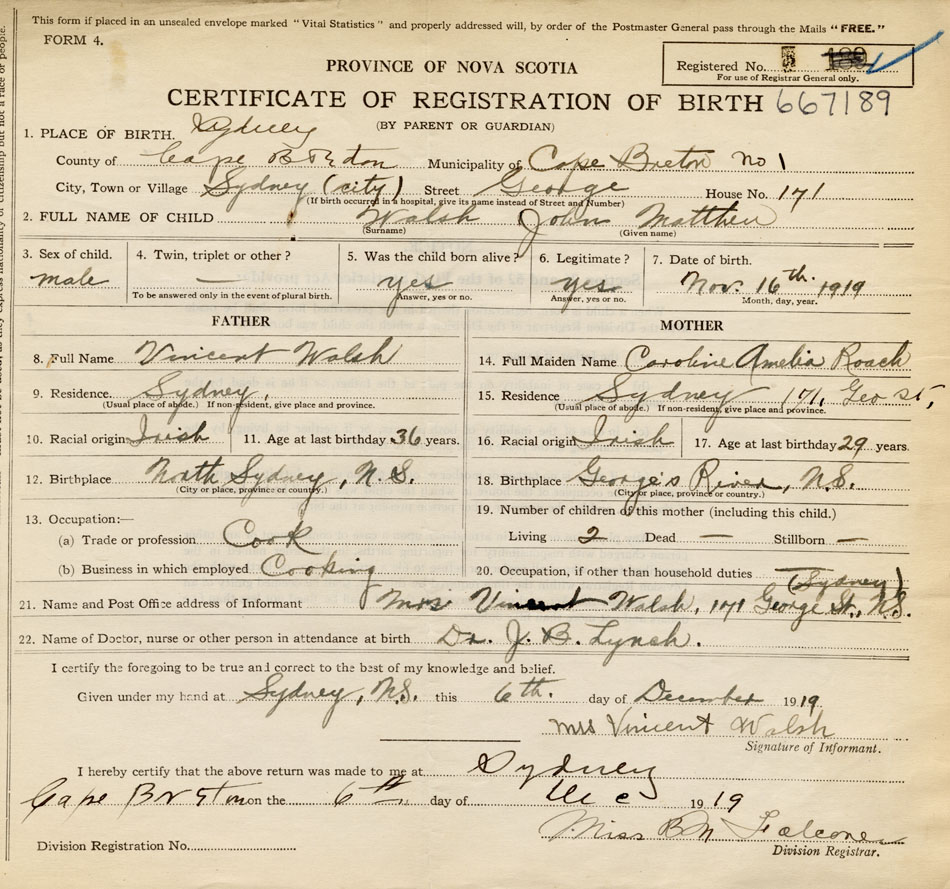 This form if placed in an unsealed envelope marked "Vital Statistics" and properly addressed will, by order of the Postmaster General pass through the Mails "FREE."
FORM 4.
Registered No.
For use of Registrar General only.
PROVINCE OF NOVA SCOTIA
CERTIFICATE OF REGISTRATION OF BIRTH 667189
(BY PARENT OR GUARDIAN)
1. PLACE OF BIRTH. Sydney
County of Cape Breton Municipality of Cape Breton No 1
City, Town or Village Sydney (city) Street George House No. 171
(If birth occurred in a hospital, give its name instead of Street and Number)
2. FULL NAME OF CHILD Walsh John Matthew
(Surname) (Given name)
3. Sex of child. 4. Twin, triplet or other? 5. Was the child born alive? 6. Legitimate? 7. Date of birth.
male — yes yes Nov. 16th 1919
To be answered only in the event of plural birth. Answer, yes or no. Answer, yes or no. Month, day, year.
FATHER MOTHER
8. Full Name Vincent Walsh
14. Full Maiden Name Caroline Amelia Roach
9. Residence Sydney,
15. Residence Sydney 171, Geo St,
(Usual place of abode.) If non-resident, give place and province.
(Usual place of abode.) If non-resident, give place and province.
10. Racial origin Irish 11. Age at last birthday 36 years.
16. Racial origin Irish 17. Age at last birthday 29 years.
12. Birthplace North Sydney, N.S.
(City or place, province or country.)
18. Birthplace George's River, N.S.
(City or place, province or country.)
13. Occupation:—
19. Number of children of this mother (including this child.)
(a) Trade or profession Cook
Living 2 Dead — Stillborn —
(b) Business in which employed Cooking
20. Occupation, if other than household duties —
(Sydney)
21. Name and Post Office address of Informant Mrs Vincent Walsh, 171 George St., N.S.
22. Name of Doctor, nurse or other person in attendance at birth Dr. J. B. Lynch.
I certify the foregoing to be true and correct to the best of my knowledge and belief.
Given under my hand at Sydney, N.S. this 6th. day of December 1919
Mrs Vincent Walsh
Signature of Informant.
I hereby certify that the above return was made to me at Sydney
Cape Breton on the 6th day of Dec 1919
Miss B M Falconer
Division Registrar.
Division Registration No.